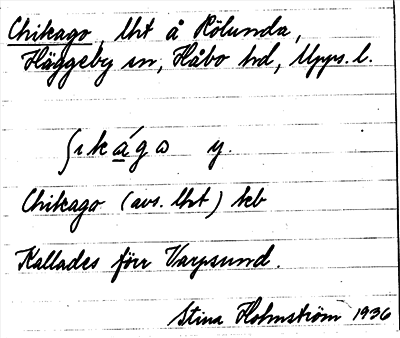 Chikago, lht å Rölunda,
Häggeby sn, Håbo hd, Upps. l.
ʃıkágω y.
Chikago (avs. lht) kb
Kallades förr Varpsund.
Stina Holmström 1936